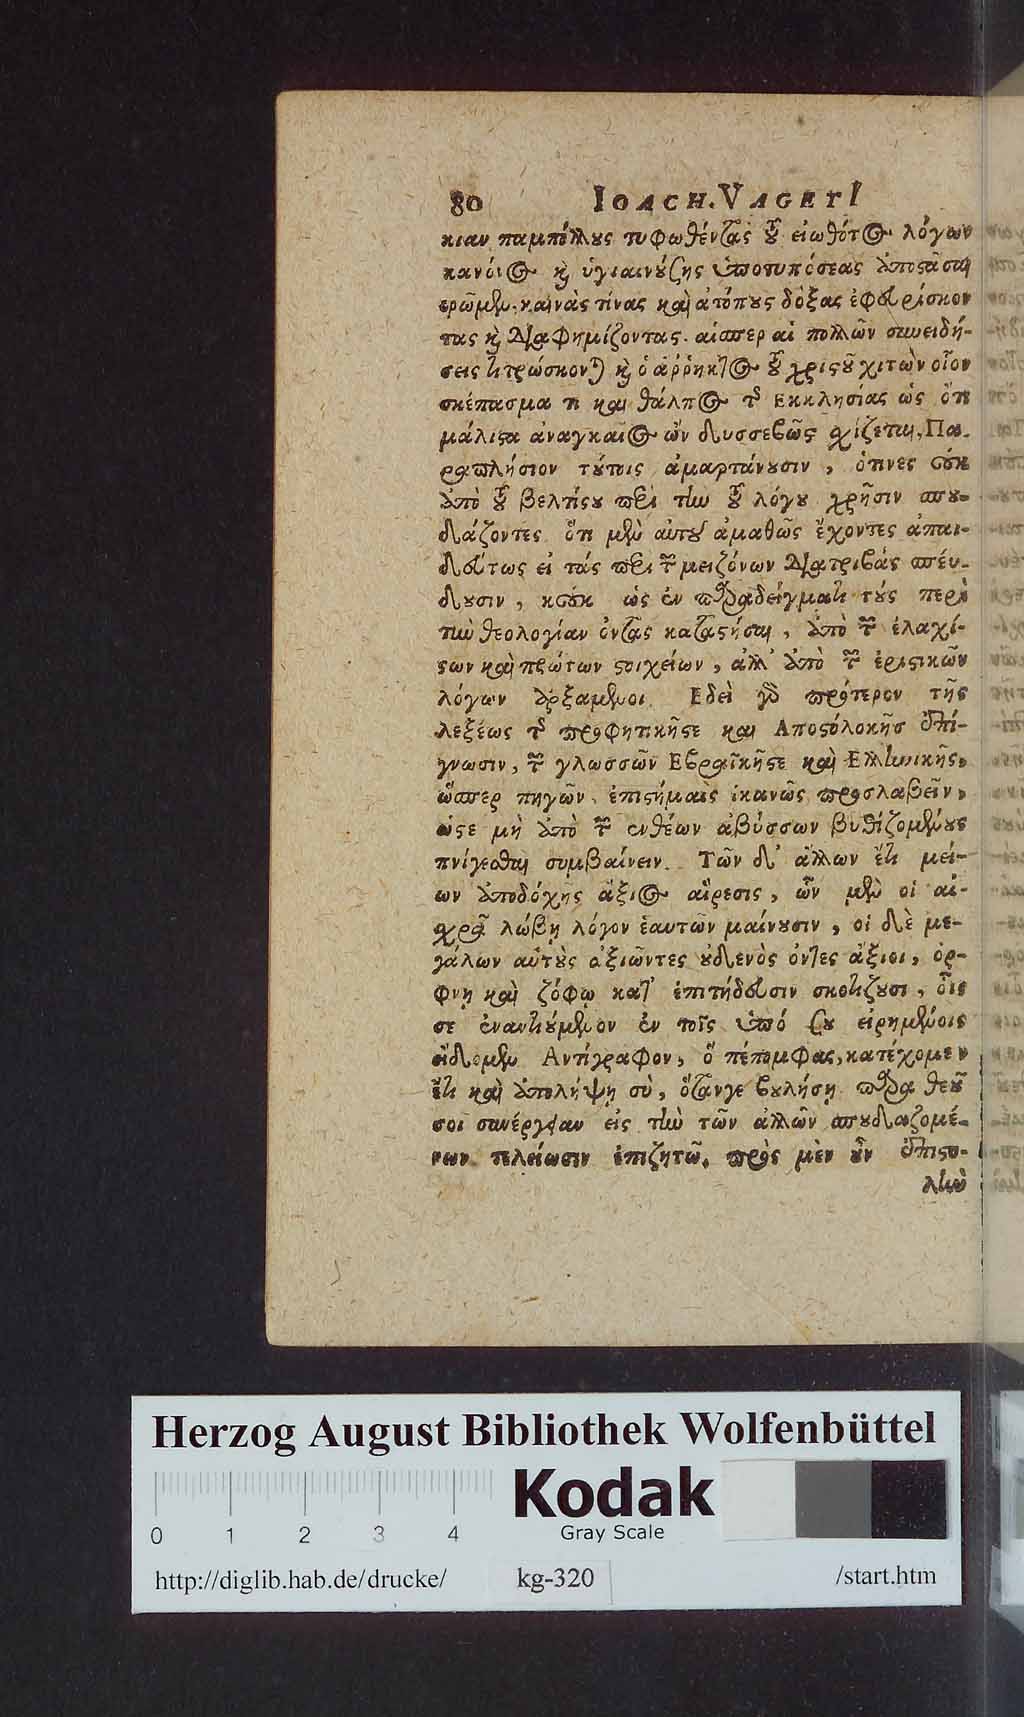 80 IOACH. VAGETI
κιαν παμπόλλους τυφωθέντας τοῦ εἰωθότος λόγων
κανόνος καὶ ὑγιαινούσης ὑποτυπόσεας ἀποστᾶσαι
ὁρῶμεν. καινὰς τίνας καὶ ἀτόπους δόξας ἐφευρίσκον
τας καὶ διαφημίζοντας. αἷσπερ αἱ πολλῶν συνειδή-
σεις τιτρώσκονται καὶ ὁ ἀῤῥηκτος τοῦ χριστοῦ χιτὼν οἷον
σκέπασμα τι και θάλπος τῆς Εκκλησίας ὡς ὅτι
μάλιστα ἀναγκαῖος ὢν δυσσεβῶς σχίζεται. Πα-
ραπλήσιον τύτοις ἁμαρτάνουσιν, ὁτινες οὐκ
ἀπὸ τοῦ βελτίσου περὶ τὴν τοῦ λόγου χρῆσιν σπου-
δάζοντες ὅτι μὲν αὐτοῦ ἀμαθῶς ἔχοντες ἀπαι-
δεύτως εἰ τάς περι τῶν μειζόνων διατριβάς σπέυ-
δουσιν, κοὐκ ὡς ἐν παραδείγματι τούς περὶ
τὴν θεολογίαν ὀντας καταστήσαι, ἀπὸ τῶν ἐλαχί-
στων καὶ πρώτων στοιχείων, ἀλλ' ἀπὸ τῶν ἐριστικῶν
λόγων ἀρξαμενοι Εδεὶ γὰρ πρότερον τῆς
λεξέως τῆς προφητικῆστε και Αποστόλοκῆσ ἐπί-
γνωσιν, τῶν γλωσσῶν Εβραϊκῆστε καὶ Ελληνικῆς,
ὥσπερ πηγῶν ἐπιστήμαις ἱκανῶς προσλαβεῖν,
ὡστε μὴ ἀπὸ τῶν ἐνθέων ἀβύσσων βυθίζομένους
πνίγεσθαι συμβαίνειν. Τῶν δ' ἄλλων ἔτι μεί-
ων ἀποδόχῆς ἄξιος αἵρεσις, ὧν μὲν οἱ αἰ-
σχρᾷ λώβῃ λόγον ἑαυτῶν μαίνουσιν, οἱ δὲ με-
γάλων αὑτοὺς ἀξιῶντες οὐδενὸς ὀντες ἄξιοι, ὀρ-
φνῃ καὶ ζόφῳ κατ' ἐπιτήδευσιν σκοτιζουσι, οἷς
σε ἐναντιούμενον ἐν τοῖς ὑπό σου εἰρημένοις
εἴδομεν Αντίγραφον, ὅ πέπομφας, κατέχομεν
ἔτι καὶ ἀπολήψῃ σὺ, ὅτανγε βουλήσῃ παρα θεοῦ
σοι συνέργειαν εἰς τὴν τῶν ἀλλῶν σπουδαζομέ-
νων τελείωσιν ἐπιζητῶ. πρὸς μὲν οὖν ἐπιστο-
λὴν
Herzog August Bibliothek Wolfenbüttel
0 1 2 3 4
Kodak
Gray Scale
http://diglib.hab.de/drucke/ kg-320 /start.htm